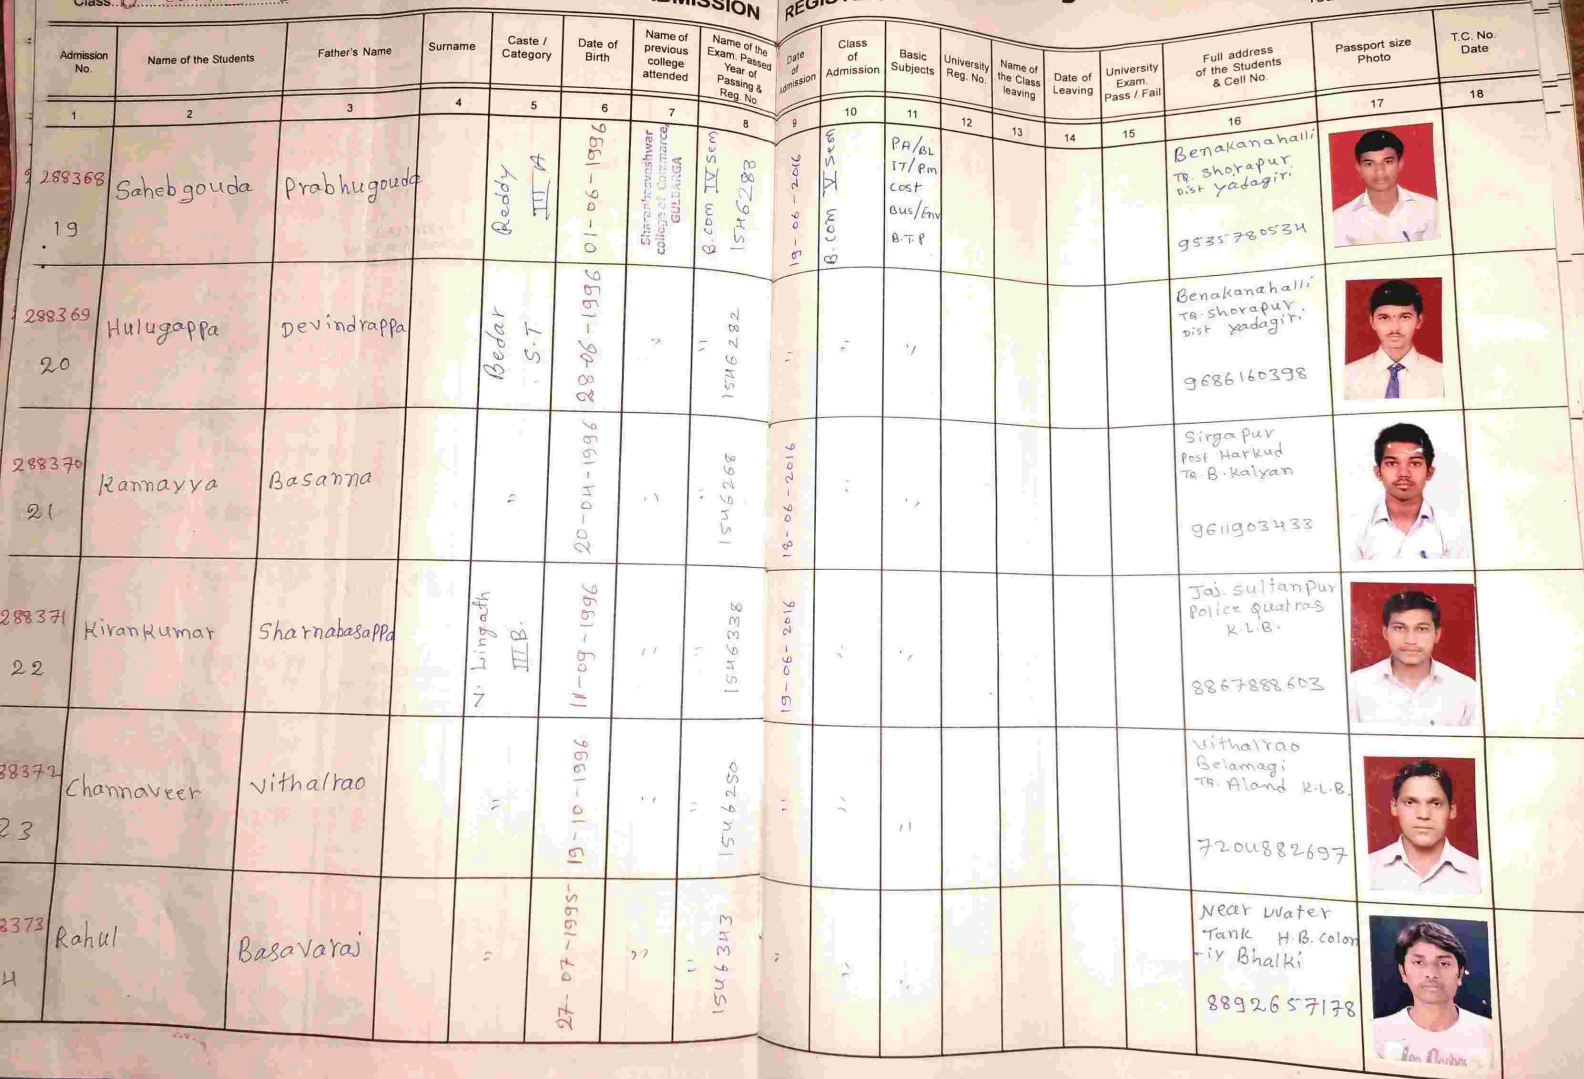 Class
ADMISSION
Admission No.
Name of the Students
Father's Name
Surname
Caste / Category
Date of Birth
Name of previous college attended
Name of the Exam. Passed Year of Passing & Reg. No.
Date of Admission
Class of Admission
Basic Subjects
University Reg. No.
Name of the Class leaving
Date of Leaving
University Exam. Pass / Fail
Full address of the Students & Cell No.
Passport size Photo
T.C. No. Date
1 2 3 4 5 6 7 8 9 10 11 12 13 14 15 16 17 18
288368
19
Sahebgouda
Prabhugouda
Reddy
III A
01-06-1996
Sharanbasveshwar
college of Commarce
GULBARGA
B.com IV sem
1546283
19-06-2016
B.com V sem
PA/BL
IT/Pm
Cost
Bus/Env
B.T.P
Benakanahalli
TQ. Shorapur
Dist Yadagiri
9535780534
288369
20
Hulugappa
Devindrappa
Bedar
S.T
28-06-1996
"
"
1546282
"
"
"
Benakanahalli
TQ. Shorapur.
Dist Yadagiri.
9686160398
288370
21
Kannayya
Basanna
"
20-04-1996
"
"
1546268
18-06-2016
"
"
Sirgapur
Post Harkud
TQ. B. Kalyan
9611903433
288371
22
Kirankumar
Sharnabasappa
V. Lingath
III B.
11-09-1996
"
"
1546338
19-06-2016
"
"
Taj Sultanpur
Police Quatras
K.L.B.
8867888603
88372
23
Channaveer
Vithalrao
"
19-10-1996
"
"
1546250
"
"
"
Vithalrao
Belamagi
TQ. Aland K.L.B.
7204882697
3373
4
Rahul
Basavaraj
"
27-07-1995
"
"
1546343
"
"
"
Near Water
Tank H.B. Colon
-iy Bhalki
8892657178